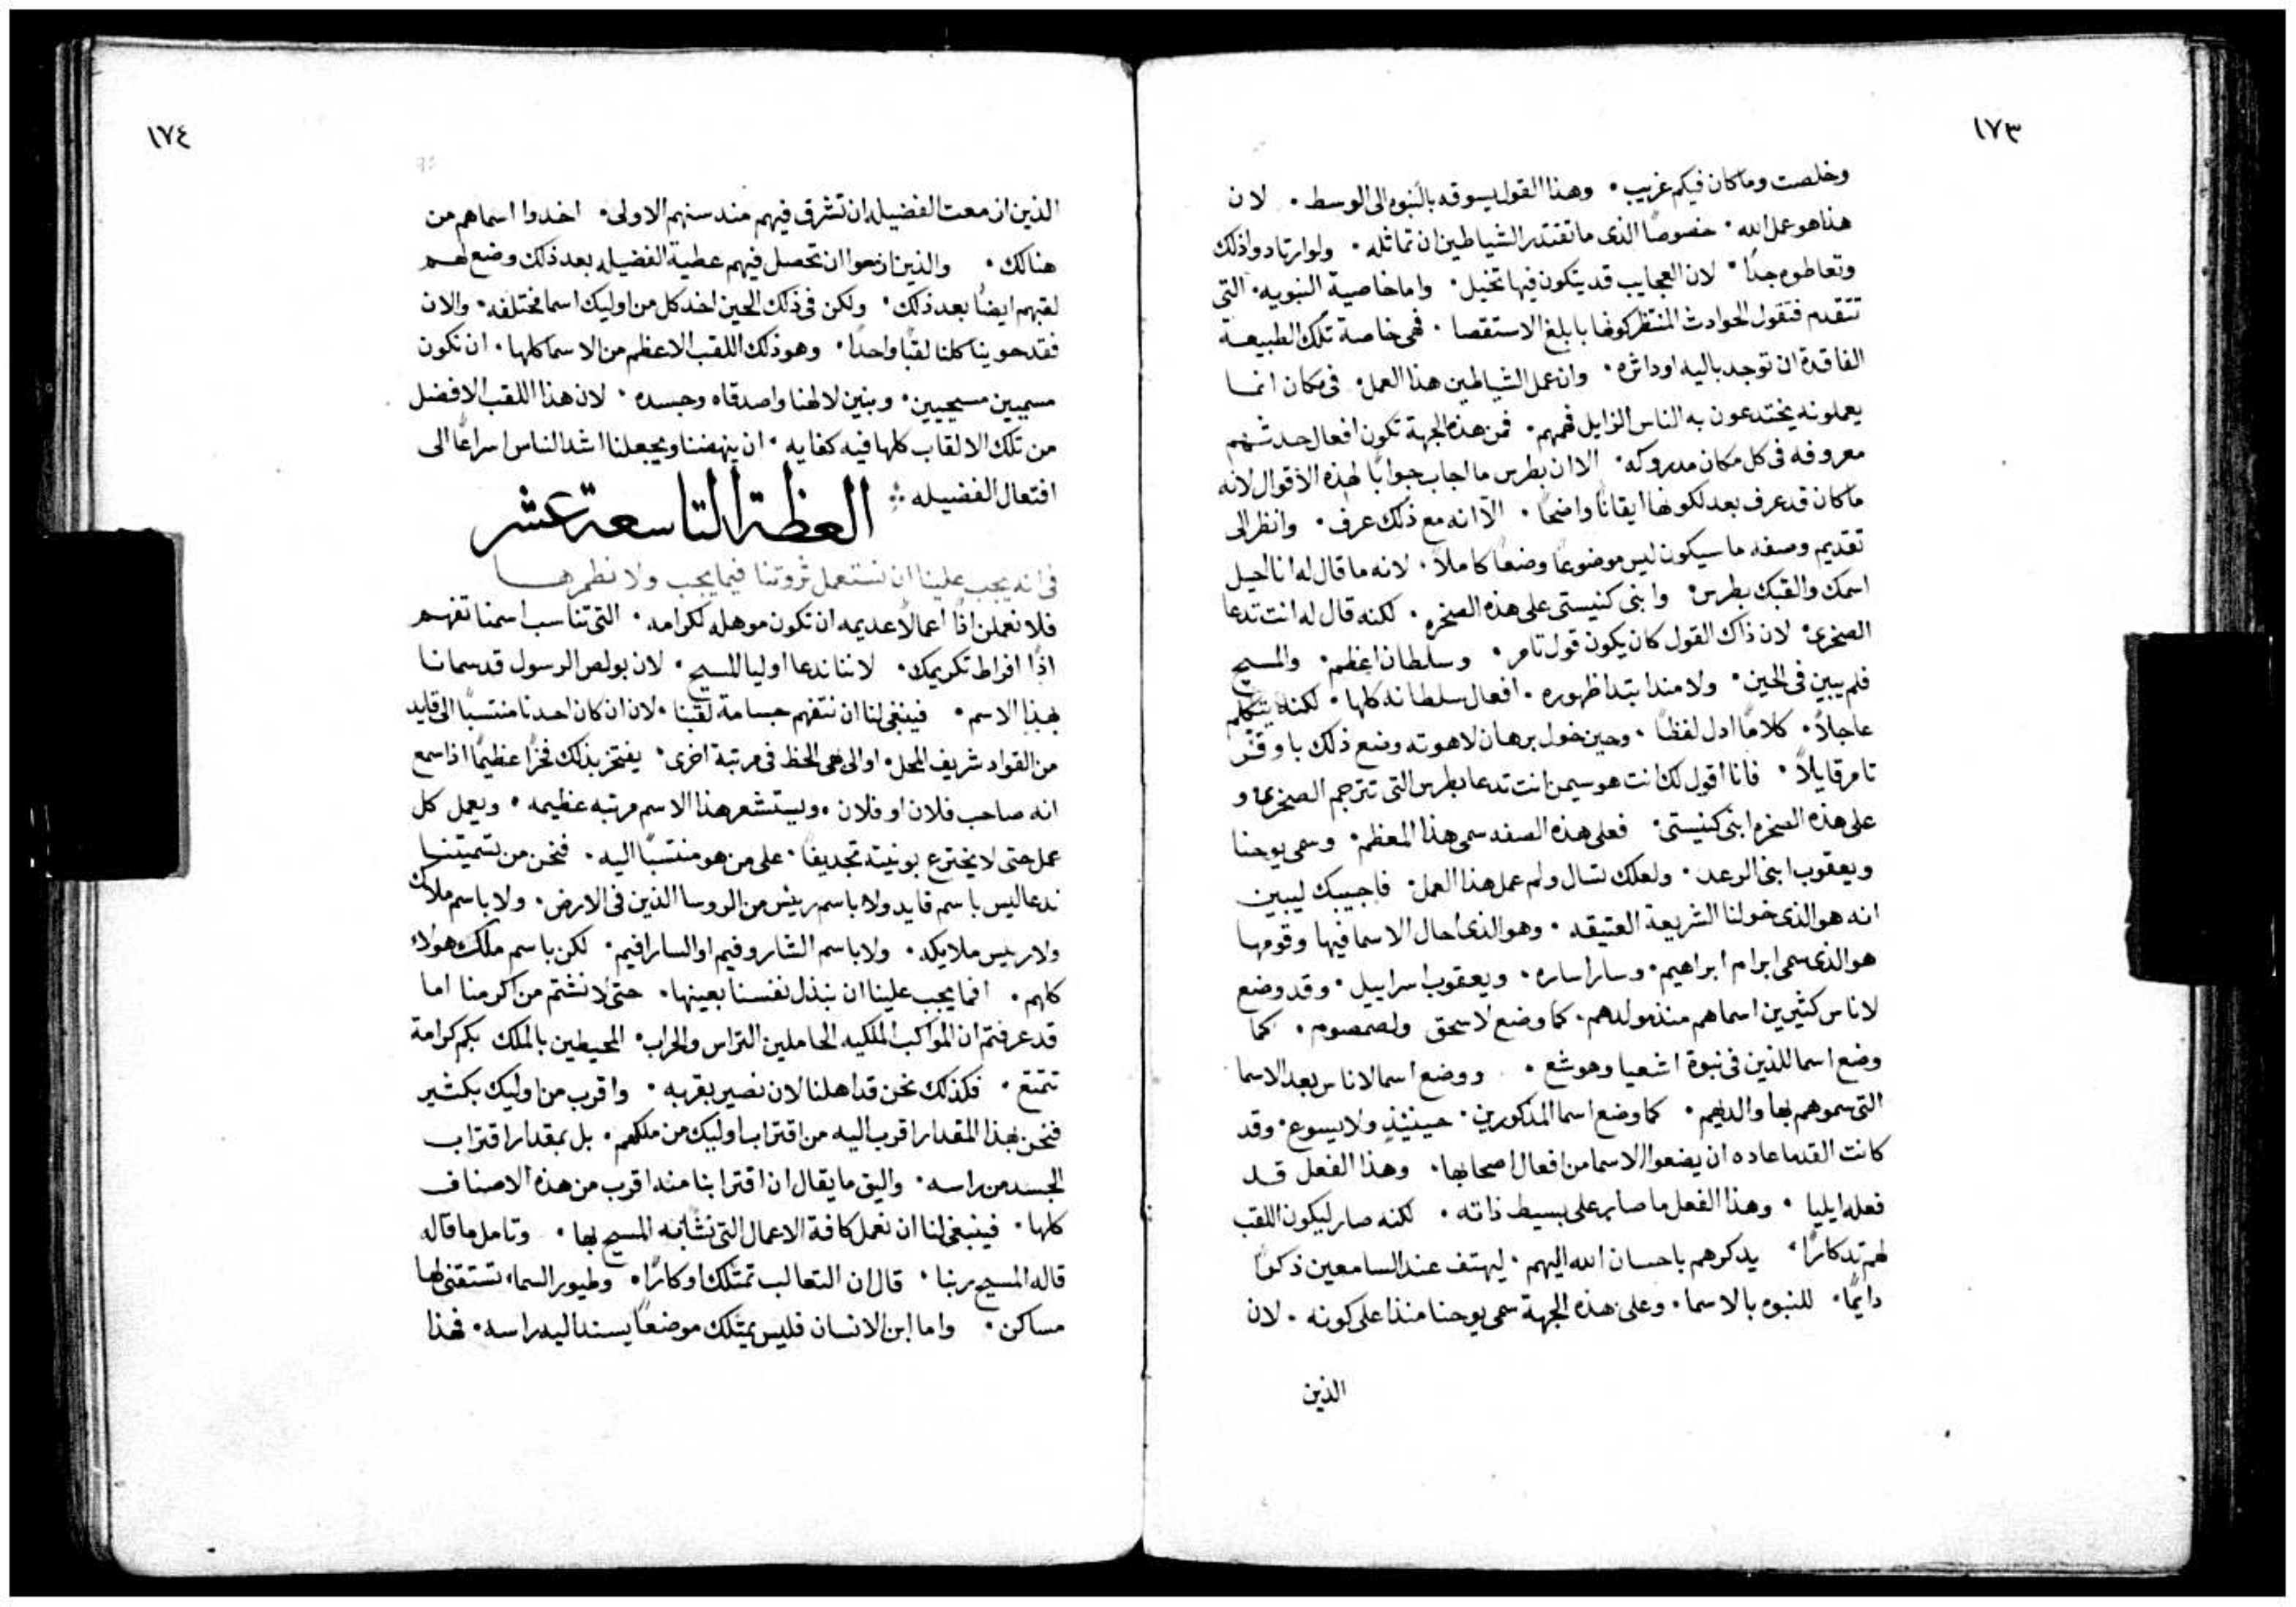 ١٧٣
وخلصت وما كان فيكم غريب • وهذا القول يسوقه بالنبوه الى الوسط • لان
هذا هو عمل الله • خصوصًا الذى ما تقتدر الشياطين ان تماثله • ولو ارتادوا ذلك
وتعاطوه جدًا • لان العجايب قد يتكون فيها تخيل • واما خاصية النبويه • التى
تتقدم فتقول الحوادث المنتظر كونها بابلغ الاستقصا • فهى خاصة تلك الطبيعة
الفاقدة ان توجد باليه او داثره • وان عمل الشياطين هذا العمل • فى مكان انما
يعملونه يختدعون به الناس الزايل فهمهم • فمن هذه الجهة تكون افعال حدثهم
معروفه فى كل مكان مدروكه • الا ان بطرس ما اجاب جوابًا لهذه الاقوال لانه
ما كان قد عرف بعد لكونها ايقانًا واضحًا • الا انه مع ذلك عرف • وانظر الى
تقديم وصفه ما سيكون ليس موضوعًا وضعًا كاملاً • لانه ما قال له انا احيل
اسمك والقبك بطرس • وابنى كنيستى على هذه الصخره • لكنه قال له انت تدعا
الصخرى • لان ذاك القول كان يكون قول تامر • وسلطان اعظم • والمسيح
فلم يبين فى الحين • ولا منذ ابتدا ظهوره • افعال سلطانه كلها • لكنه يتكلم
عاجلاً • كلامًا ادل لفظًا • وحين خول برهان لاهوته وضع ذلك باوفر
تامر قايلاً • فانا اقول لك انت هو سيمن انت تدعا بطرس التى تترجم الصخرى و
على هذه الصخره ابنى كنيستى • فعلى هذه الصفه سمى هذا المعظم • وسمى يوحنا
ويعقوب ابنى الرعد • ولعلك تسال ولم عمل هذا العمل • فاجيبك ليبين
انه هو الذى خولنا الشريعة العتيقه • وهو الذى احال الاسما فيها وقومها
هو الذى سمى ابرام ابراهيم • وسارا ساره • ويعقوب اسراييل • وقد وضع
لاناس كثيرين اسماهم منذ مولدهم • كما وضع لاسحق ولصمصوم • كما
وضع اسما للذين فى نبوة اشعيا وهوشع • ووضع اسما لاناس بعد الاسما
التى سموهم بها والديهم • كما وضع اسما المذكورين • حينئذٍ ولايسوع • وقد
كانت القدما عاده ان يضعوا الاسما من افعال اصحابها • وهذا الفعل قد
فعله ايليا • وهذا الفعل ما صار على بسيط ذاته • لكنه صار ليكون اللقب
لهم تدكارًا • يدكرهم باحسان الله اليهم • ليهتف عند السامعين ذكرًا
دايمًا • للنبوه بالاسما • وعلى هذه الجهة سمى يوحنا منذ اعلى كونه • لان
الذين
١٧٤
الذين ازمعت الفضيله ان تشرق فيهم مند سنهم الاولى • اخدوا اسماهم من
هنالك • والذين ازمعوا ان تحصل فيهم عطية الفضيله بعد ذلك وضع لهم
لقبهم ايضًا بعد ذلك • ولكن فى ذلك الحين اخد كل من اوليك اسما مختلفه • والان
فقد حوينا كلنا لقبًا واحدًا • وهو ذلك اللقب الاعظم من الاسما كلها • ان نكون
مسميين مسيحيين • وبنين لالهنا واصدقاه وجسده • لان هذا اللقب الافضل
من تلك الالقاب كلها فيه كفايه • ان ينهضنا ويجعلنا اشد الناس اسراعًا الى
افتعال الفضيله
العظة التاسعة عشر
فى انه يجب علينا ان نستعمل ثروتنا فيما يجب ولا نطمرها
فلا نعملن اذًا اعمالاً عديمه ان تكون موهله لكرامه • التى تناسب اسمنا تفهم
اذًا افراط تكريمك • لاننا ندعا اوليا المسيح • لان بولص الرسول قد سمانا
بهذا الاسم • فينبغى لنا ان نتفهم جسامة لقبنا • لان ان كان احدنا منتسبًا الى قايد
من القواد شريف المحل • او الى بهى الحظ فى مرتبة اخرى • يفتخر بذلك فخرًا عظيمًا اذا سمع
انه صاحب فلان او فلان • ويستشعر هذا الاسم مرتبه عظيمه • ويعمل كل
عمل حتى لا يخترع بونيته تجديفًا • على من هو منتسبًا اليه • فنحن من تسميتنا
ندعا ليس باسم قايد ولا باسم رييس من الروسا الذين فى الارض • ولا باسم ملاك
ولا رييس ملايكه • ولا باسم الشاروفيم او السارافيم • لكن باسم ملك هولاء
كلهم • افما يجب علينا ان نبذل نفسنا بعينها • حتى لا نشتم من اكرمنا اما
قد عرفتم ان المواكب الملكيه الحاملين التراس والحراب • المحيطين بالملك بكم كرامة
تتمتع • فكذلك نحن قد اهلنا لان نصير بقربه • واقرب من اوليك بكثير
فنحن بهذا المقدار اقرب اليه من اقتراب اوليك من ملكهم • بل بمقدار اقتراب
الجسد من راسه • واليق ما يقال ان اقترابنا منه اقرب من هذه الاصناف
كلها • فينبغى لنا ان نعمل كافة الاعمال التى نشابه المسيح بها • وتامل ما قاله
قاله المسيح ربنا • قال ان التعالب تمتلك اوكارًا • وطيور السماء تستقنى لها
مساكن • واما ابن الانسان فليس يمتلك موضعًا يسند اليه راسه • فهذا